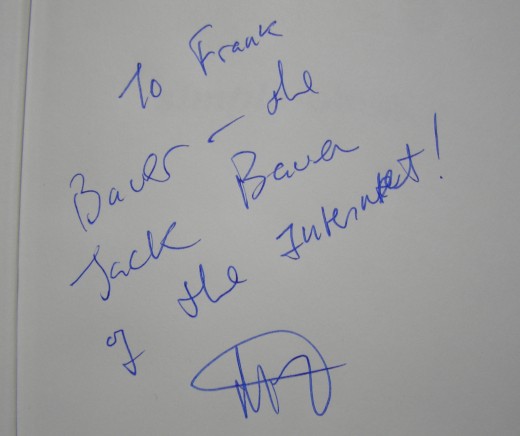 To Frank
Bauer - the
Jack Bauer
of the Internet!